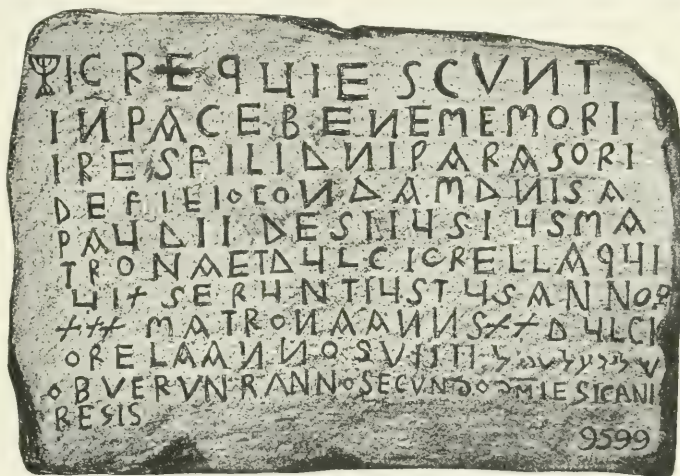 IC REQUIESCVNT
IN PACE BENEMEMORI
IRES FILI DNI PARASORI
DE FILIO CONDAM DNI SA
PAUDI I DEST IUSIUS MA
TRONA ET DULCICRELLA QUI
UIXSERUNT IUSTUS ANNOS
XXX MATRONA ANNS XX DULCI
ORELA ANNOS VIIII
OBVERVN R ANNO SECVNDO DMI ESICANI
RESIS
9599